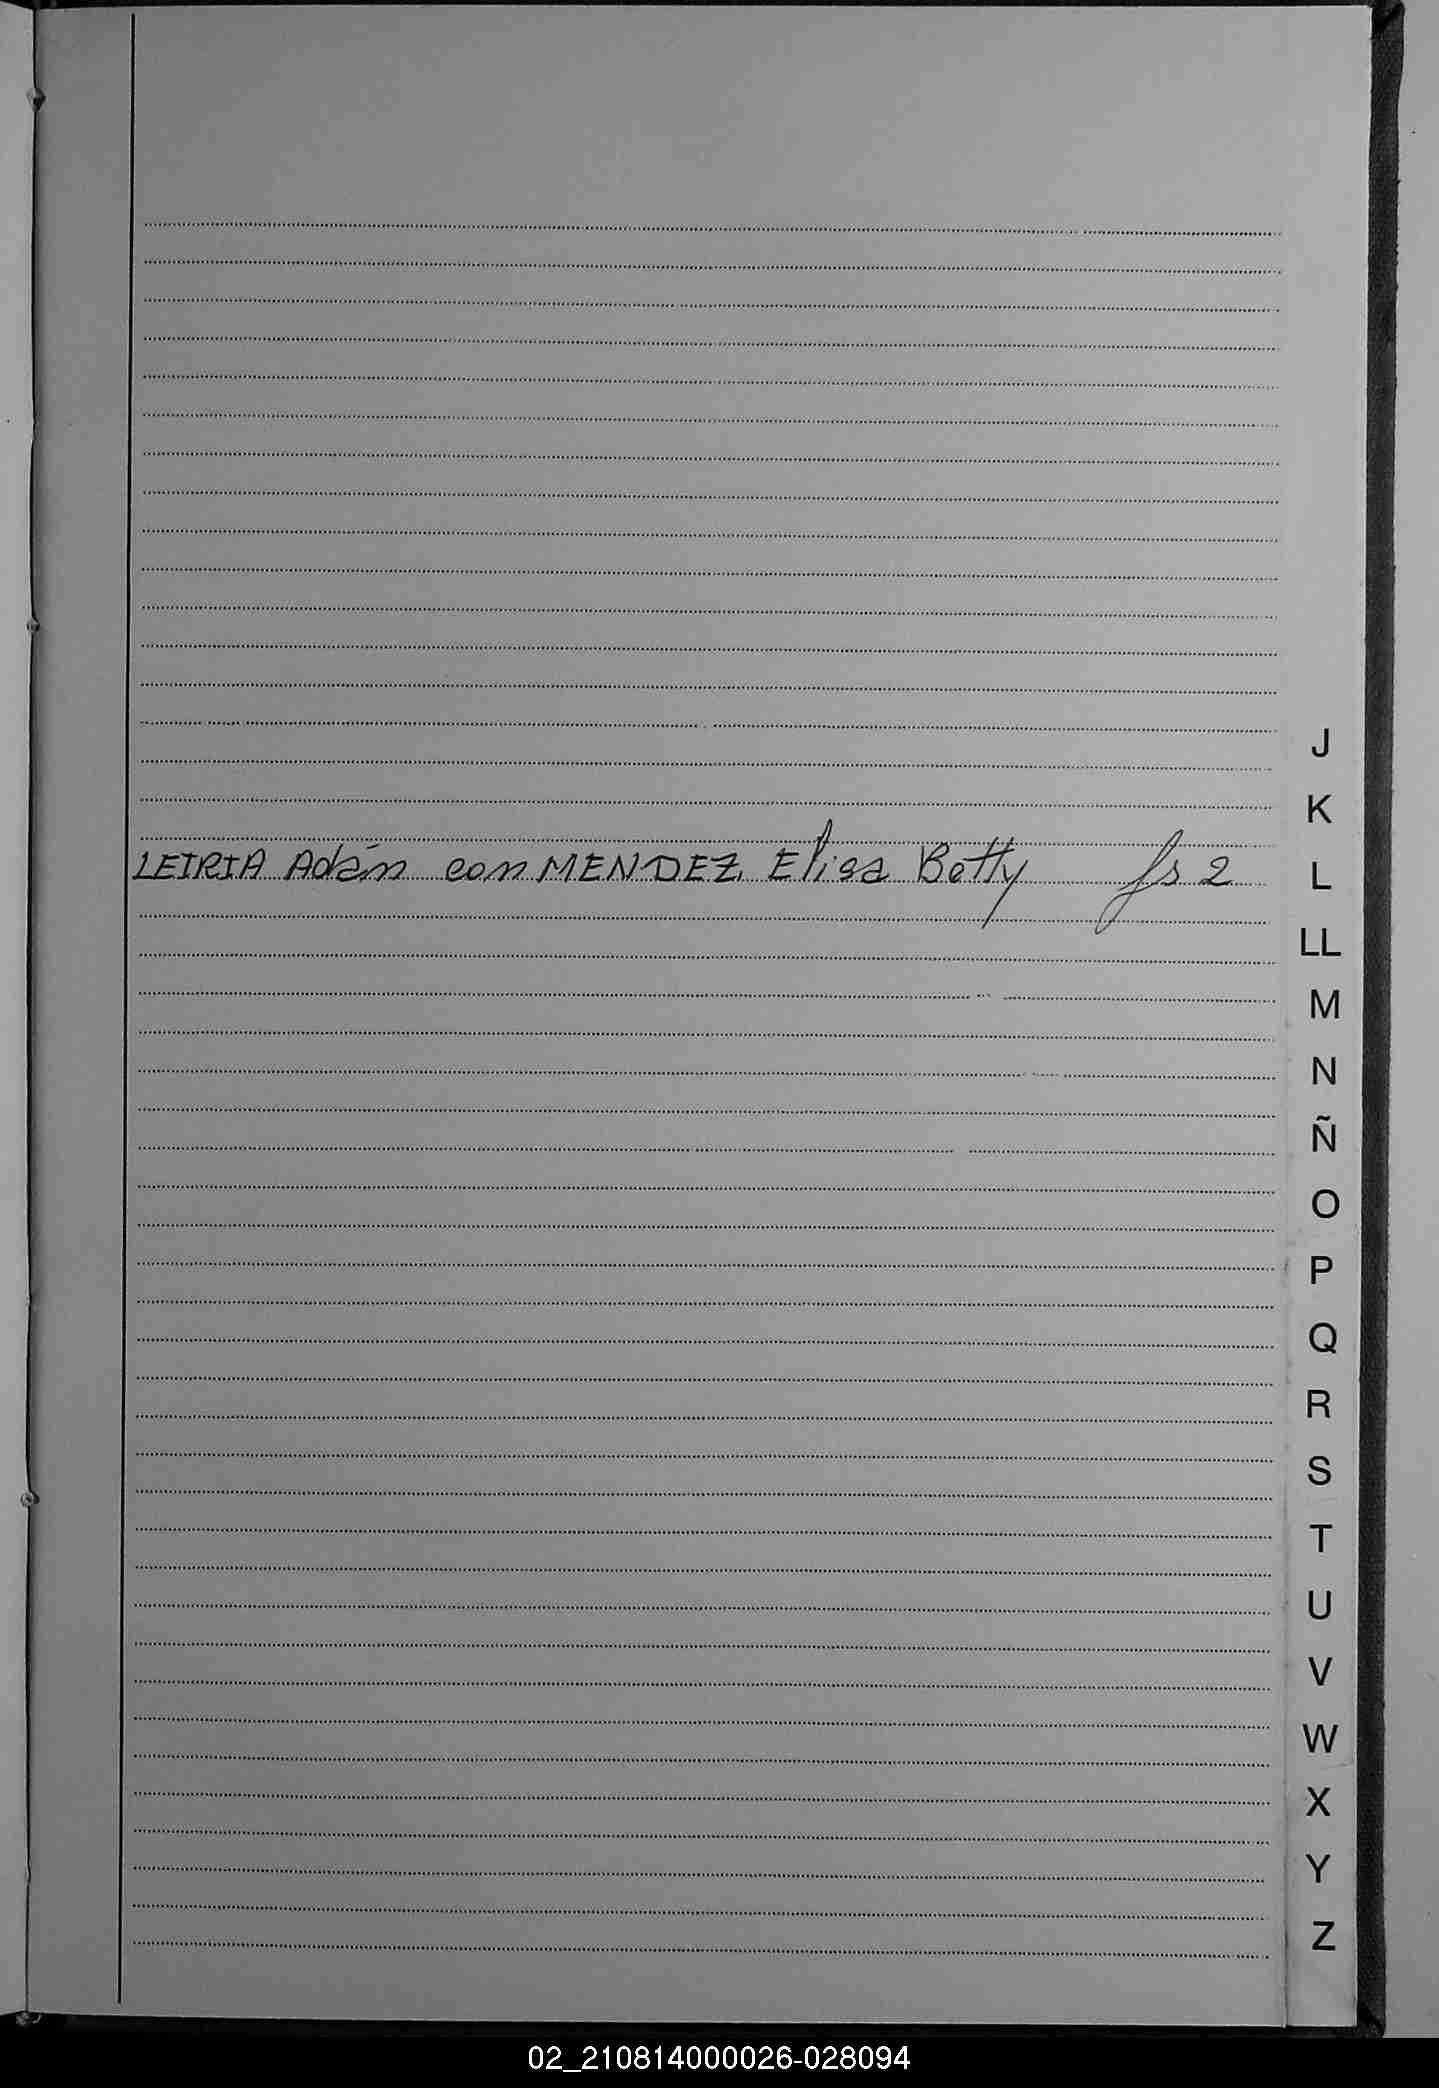 J
K
LEIRIA Adán con MENDEZ, Elisa Betty fs 2
L
LL
M
N
Ñ
O
P
Q
R
S
T
U
V
W
X
Y
Z
02_210814000026-028094